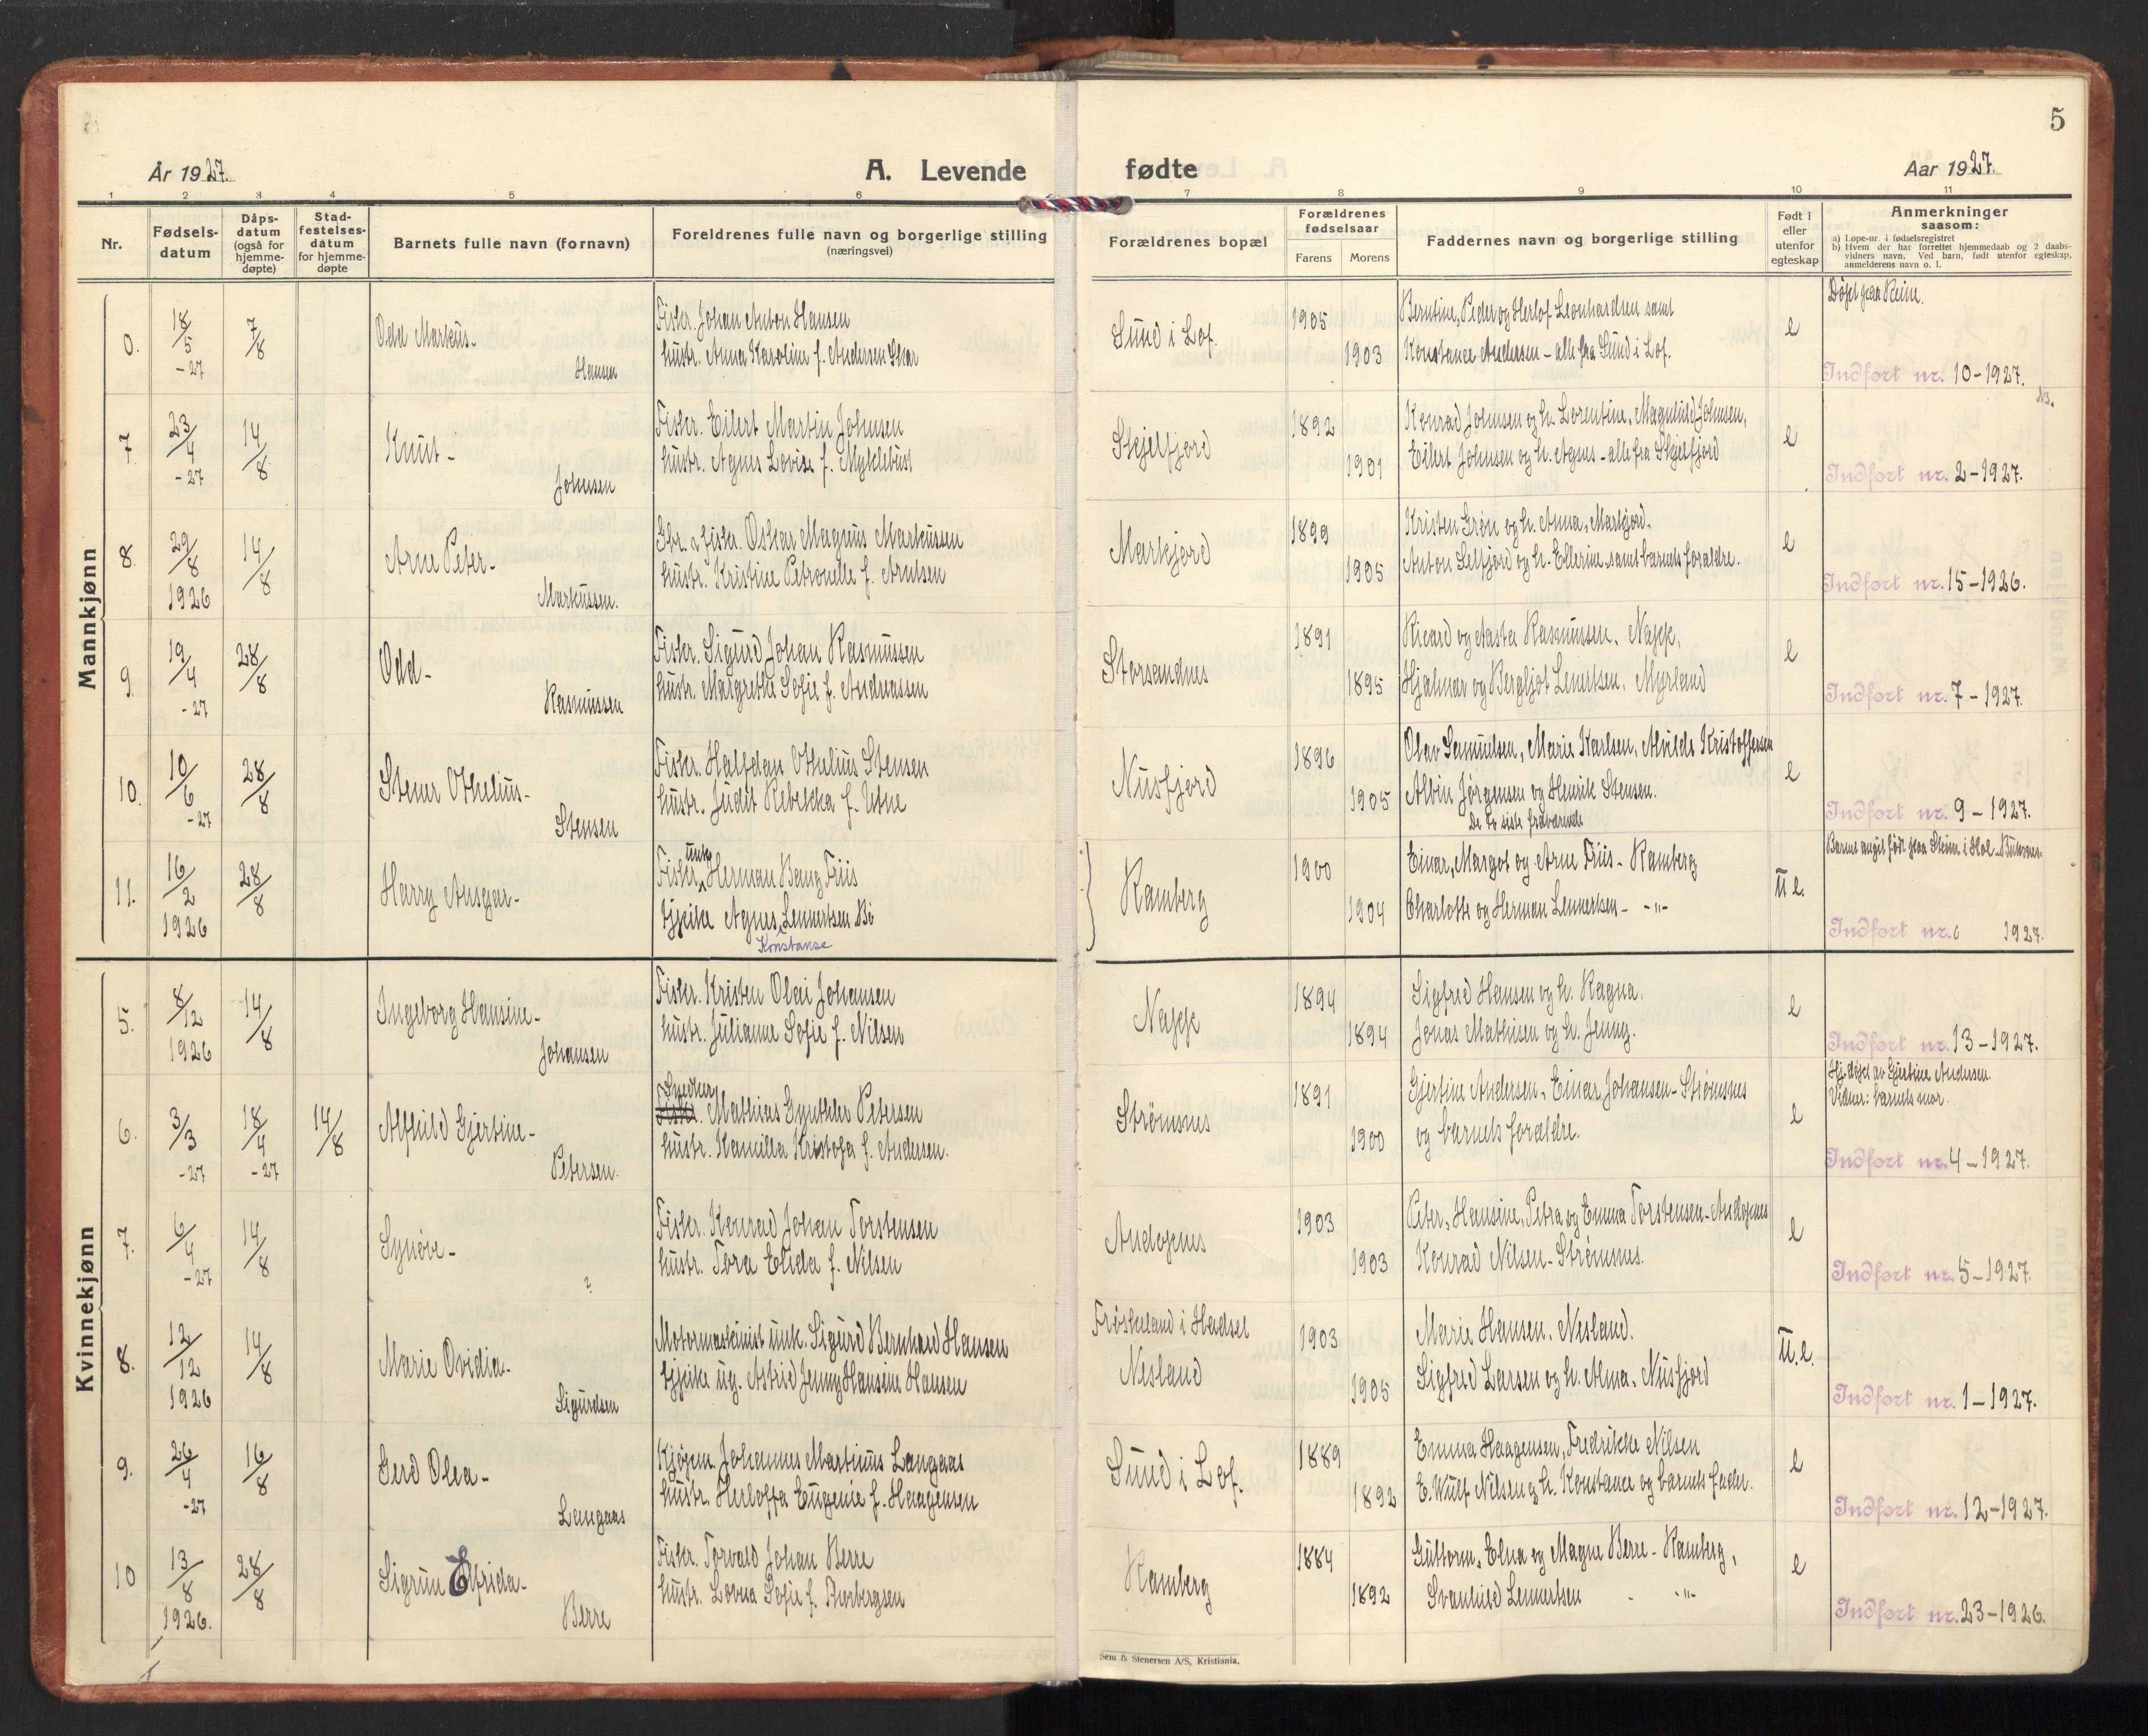 5
År 1927.
A. Levende
fødte
Aar 1927.
1 2 3 4 5 6 7 8 9 10 11
Nr.
Fødsels-
datum
Dåps-
datum
(også for
hjemme-
døpte)
Stad-
festelses-
datum
for hjemme-
døpte
Barnets fulle navn (fornavn)
Foreldrenes fulle navn og borgerlige stilling
(næringsvei)
Forældrenes bopæl
Forældrenes
fødselsaar
Farens Morens
Faddernes navn og borgerlige stilling
Født i
eller
utenfor
egteskap
Anmerkninger
saasom:
a) Løpe-nr. i fødselsregistret
b) Hvem der har forrettet hjemmedaab og 2 daabs-
vidners navn. Ved barn, født utenfor egteskap,
anmelderens navn o. l.
Mannkjønn
18/5 -27
7/8
Odd Markus-
Hansen
Fisker. Johan Anton Hansen
hustr. Anna Karoline f. Andersen
Sund i Lof.
1905
1903
Berntine, Peder og Herlof Leonhardsen samt
Konstance Andersen - alle fra Sund i Lof.
e
Døpt paa Reine.
Indført nr. 10-1927.
7.
23/4 -27
14/8
Knut-
Johnsen
Fisker. Eilert Martin Johnsen
hustr. Agnes Lovise f. Myklebust
Skjelfjord
1892
1901
Konrad Johnsen og h. Lorentine, Magnhild Johnsen,
Eilert Johnsen og h. Agnes - alle fra Skjelfjord
e
NB.
Indført nr. 2-1927.
8.
29/8 1926
14/8
Arne Peter-
Markussen.
Gbr. & fisker. Oskar Magnus Markussen
hustr. Kristine Petronelle f. Arntsen
Markjord
1899
1905
Kristen Grøn og h. Anna, Markjord.
Anton Selfjord og h. Ellerine samt barnets forældre.
e
Indført nr. 15-1926.
9.
19/4 -27
28/8
Odd-
Rasmussen
Fisker. Sigurd Johan Rasmussen
hustr. Margrethe Sofie f. Andreassen
Storsandnes
1891
1895
Ricard og Aasta Rasmussen, Napp,
Hjalmar og Bergljot Lenertsen, Myrland
e
Indført nr. 7-1927.
10.
10/6 -27
28/8
Stener Othelius-
Stensen
Fisker. Halfdan Othelius Stensen
hustr. Judit Rebekka f. Utne
Nusfjord
1896
1905
Olav Samuelsen, Marie Karlsen, Alvilde Kristoffersen
Albin Jørgensen og Henrik Stensen.
De to siste fraværende
e
Indført nr. 9-1927.
11.
16/2 1926
28/8
Harry Ansgar-
Fisker ungk. Herman Bang Friis
pike Agnes Lennertsen Bi
Konstanse
Ramberg
1900
1904
Einar, Margot og Arne Friis - Ramberg
Charlotte og Herman Lennertsen - -"-
u e.
Barnet angis født paa Steine i Hol
Indført nr. 1927.
Kvinnekjønn
5.
8/12 1926
14/8
Ingeborg Hansine-
Johansen
Fisker. Kristen Olai Johansen
hustr. Julianne Sofie f. Nilsen
Napp
1894
1894
Sigfred Hansen og h. Ragna.
Jonas Mathisen og h. Jenny.
e
Indført nr. 13-1927.
6.
3/3 -27
18/4 -27
14/8
Alfhild Gjertine-
Petersen.
Snedker
Fisker. Mathias Gynther Petersen
hustr. Kamilla Kristofa f. Andersen.
Strømsnes
1891
1900
Gjertine Andersen, Einar Johansen - Strømsnes
og barnets forældre.
e
Hj. døpt av Gjertine Andersen.
Vidner: barnets mor.
Indført nr. 4-1927.
7.
6/4 -27
14/8
Synøve-
?
Fisker. Konrad Johan Torstensen
hustr. Tora Elida f. Nilsen
Andopnes
1903
1903
Peter, Hansine, Petra og Emma Torstensen - Andopnes
Konrad Nilsen - Strømsnes.
e
Indført nr. 5-1927.
8.
12/12 1926
14/8
Marie Ovidia-
Sigurdsen
Motormaskinist unk. Sigurd Bernhard Hansen
pike ug. Astrid Jenny Hansine Hansen
Frøskeland i Hadsel
Nesland
1903
1905
Marie Hansen, Nesland.
Sigfred Larsen og h. Alma, Nusfjord
u.e.
Indført nr. 1-1927.
9.
26/4 -27
16/8
Gerd Olea-
Langaas
Kjøpm. Johannes Martinus Langaas
hustr. Herloffa Eugenie f. Haagensen
Sund i Lof.
1889
1892
Emma Haagensen, Fredrikke Nilsen
E. Wulf Nilsen og h. Konstance og barnets fader.
e
Indført nr. 12-1927.
10
13/8 1926.
28/8
Sigrun Elfrida-
Berre
Fisker. Torvald Johan Berre
hustr. Lovna Sofie f. Thorbergsen
Ramberg
1884
1892
Guttorm, Elna og Magne Berre - Ramberg,
Svanhild Lennertsen - -"-
e
Indført nr. 23-1926.
Sem & Stenersen A/S, Kristiania.